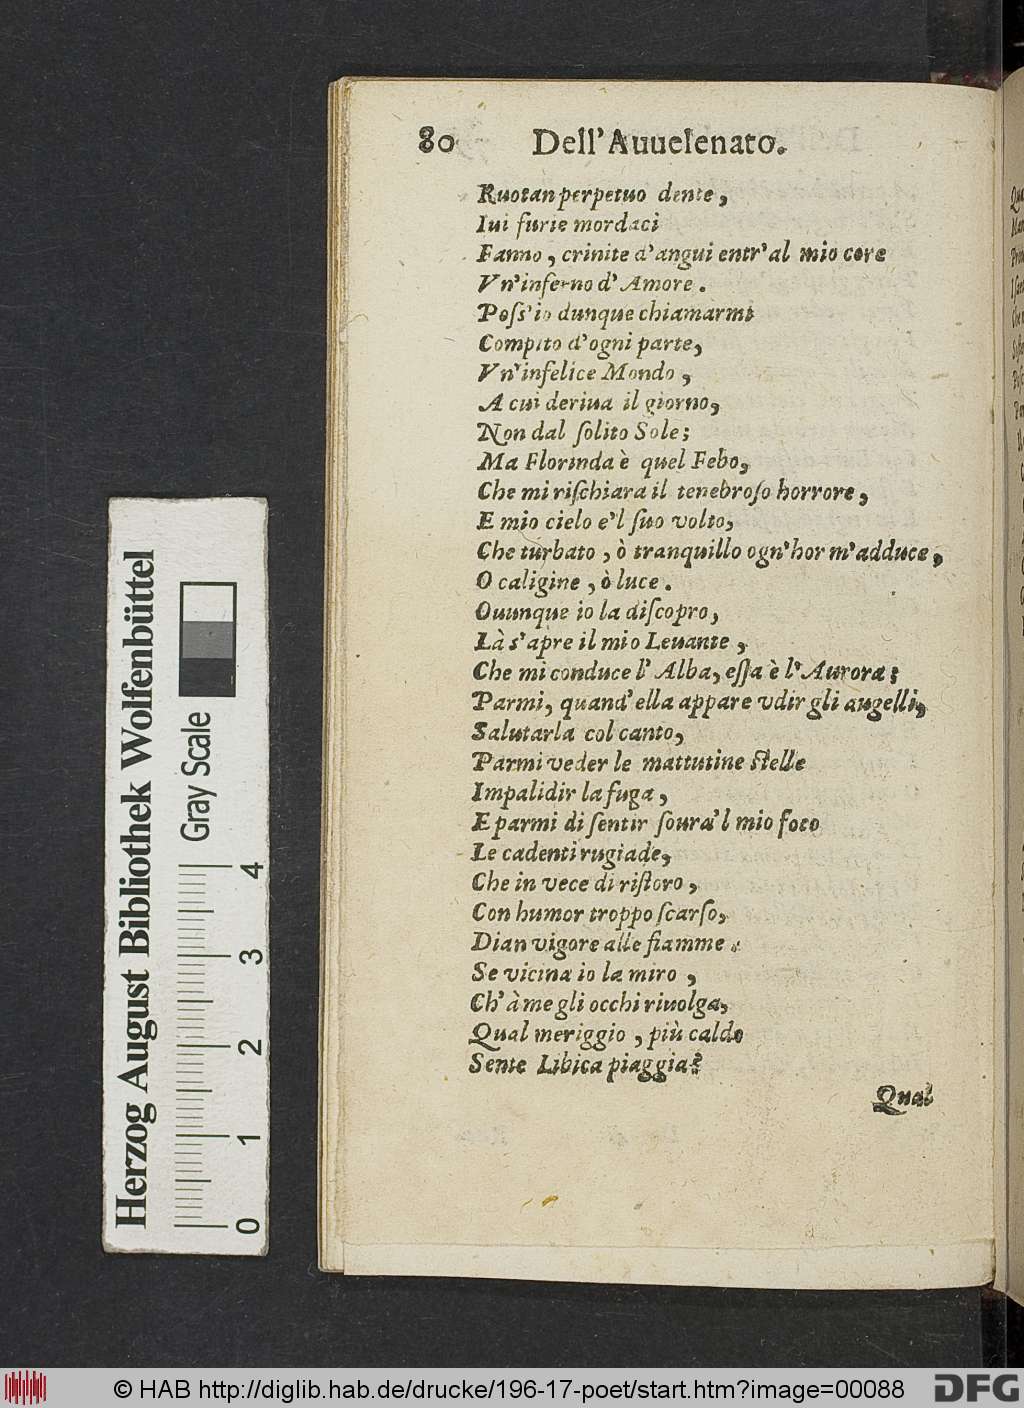 80 Dell'Auuelenato.
Ruotan perpetuo dente,
Iui furie mordaci
Fanno, crinite d'angui entr'al mio core
Vn'inferno d'Amore.
Poſs'io dunque chiamarmi
Compito d'ogni parte,
Vn'infelice Mondo,
A cui deriua il giorno,
Non dal ſolito Sole;
Ma Florinda è quel Febo,
Che mi riſchiara il tenebroſo horrore,
E mio cielo e'l ſuo volto,
Che turbato, ò tranquillo ogn'hor m'adduce,
O caligine, ò luce.
Ouunque io la diſcopro,
Là s'apre il mio Leuante,
Che mi conduce l'Alba, eſſa è l'Aurora;
Parmi, quand'ella appare vdir gli augelli,
Salutarla col canto,
Parmi veder le mattutine ſtelle
Impalidir la fuga,
E parmi di ſentir ſoura'l mio foco
Le cadenti rugiade,
Che in vece di riſtoro,
Con humor troppo ſcarſo,
Dian vigore alle fiamme.
Se vicina io la miro,
Ch'à me gli occhi riuolga,
Qual meriggio, più caldo
Sente Libica piaggia?
Qual
Herzog August Bibliothek Wolfenbüttel
Gray Scale
0 1 2 3 4
© HAB http://diglib.hab.de/drucke/196-17-poet/start.htm?image=00088
DFG